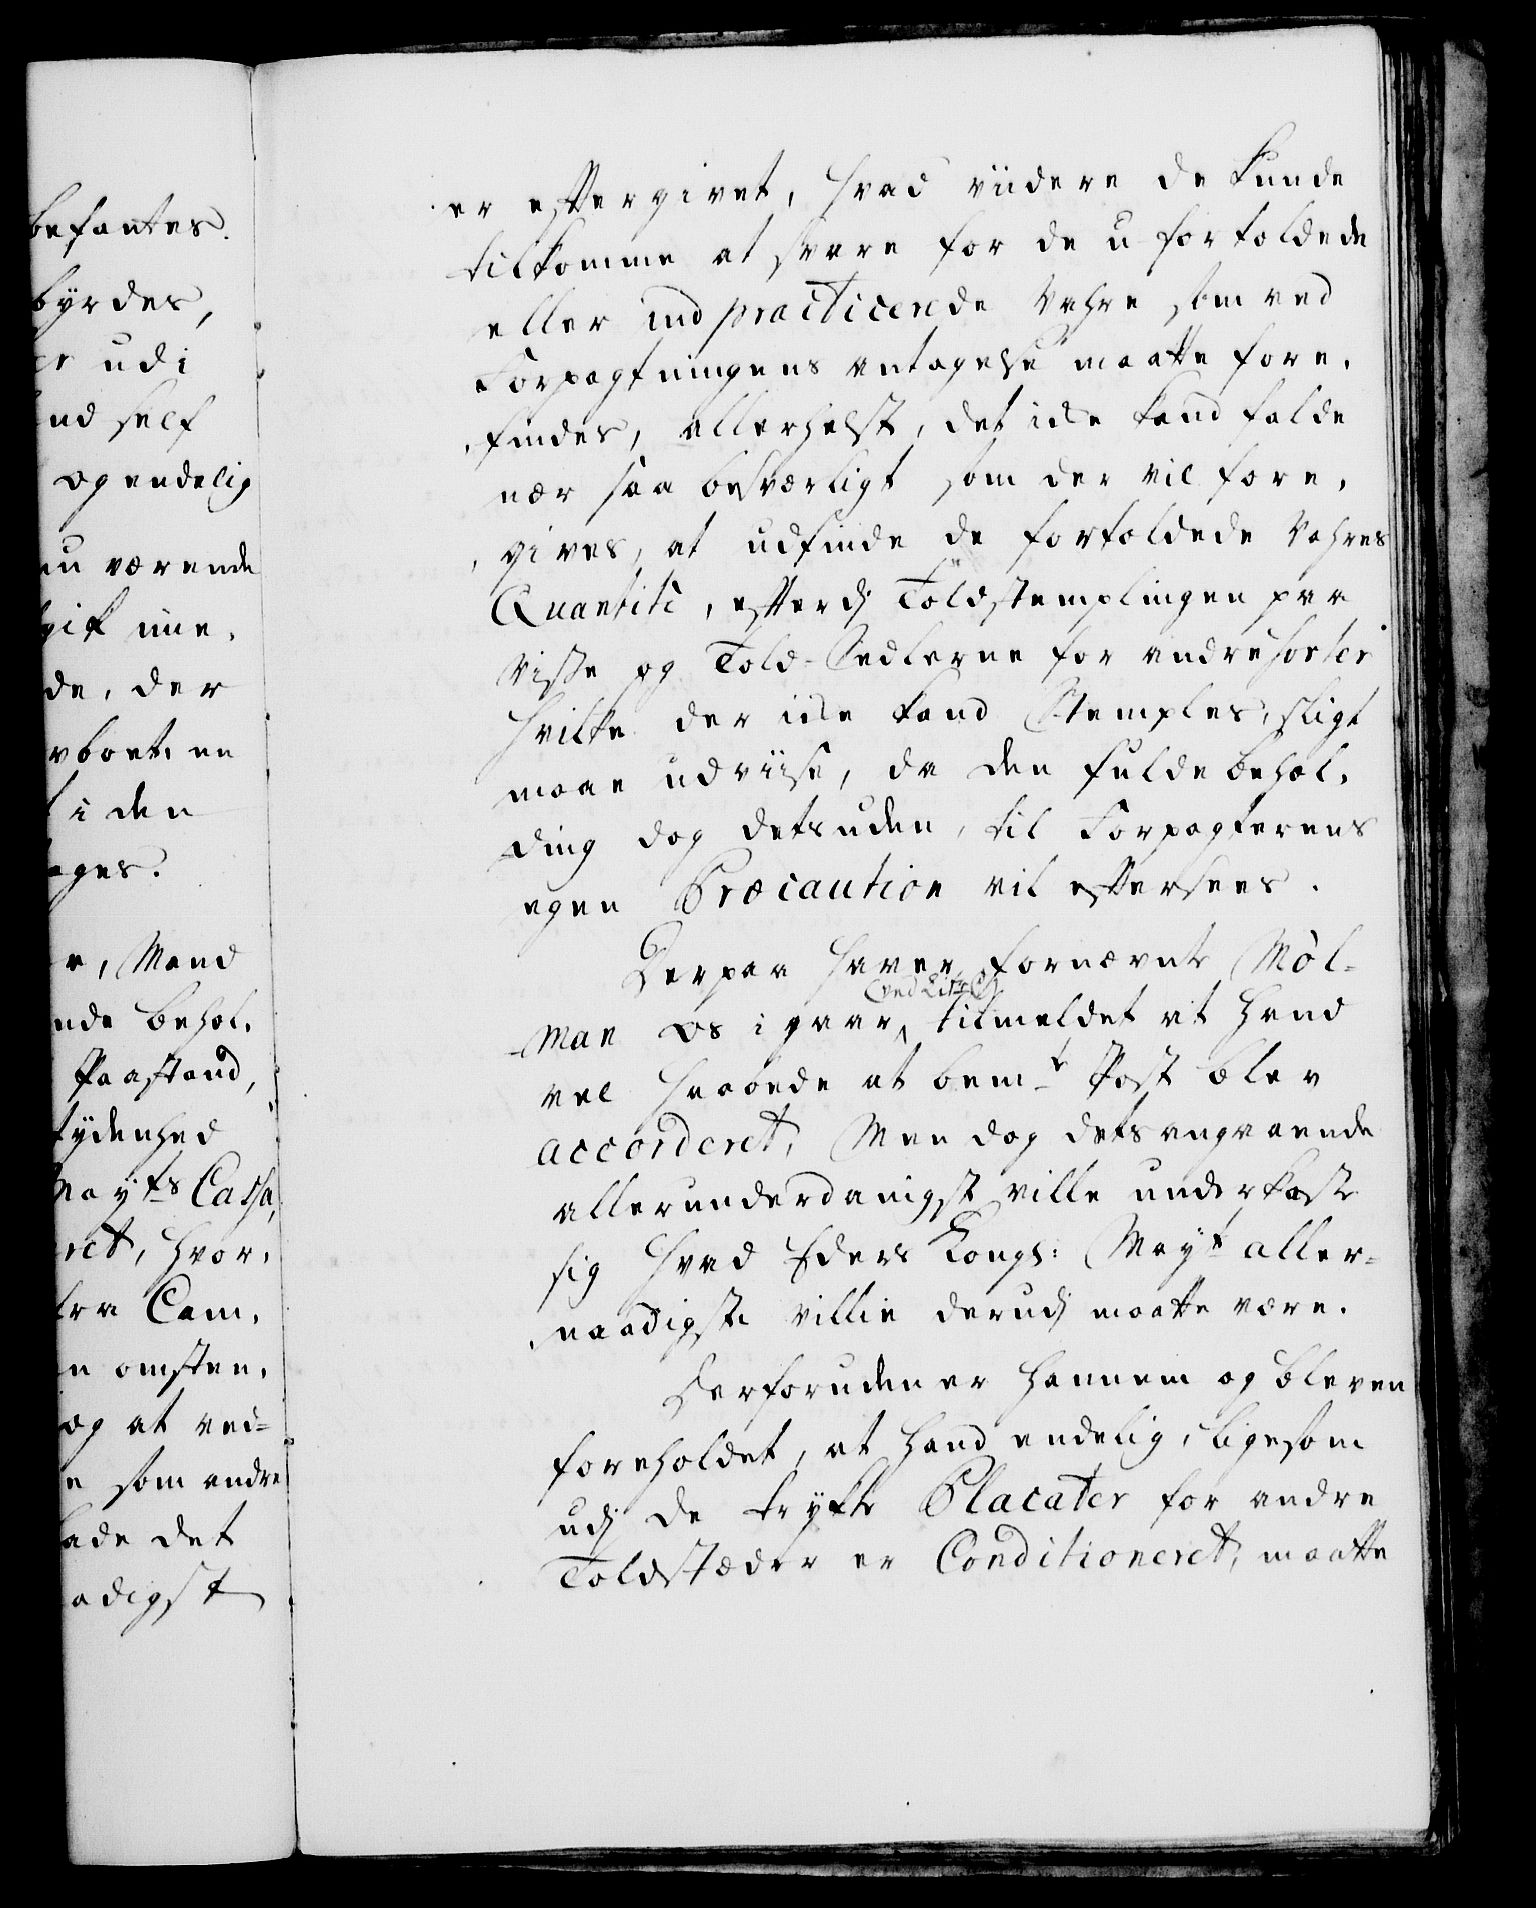 befantes.
byrdes,
er udi
end self
og endelig
nu værende
gik nue,
de, der
vboet, en
i den
ages.
e, Mand
nde behol,
Paastand,
tydenhed
Mayts Cassa,
ret, hvor,
tra Cam,
n omsten,
og at ved=
e som andre
lade det
adigst
er eftergivet, hvad viidere de kunde
tilkomme at svare for de u-fortoldede
eller ind practicerede Vahre som ved
Forpagtningens antagelse maatte fore,
findes, allerhelst, det icke kand falde
nær saa besværligt som der vil fore,
gives, at udfinde de fortoldede Vahres
Quantité, efterdj Toldstemplingen paa
Visse og Told-Sedlerne for andre sorter
hvilke der icke kand Stemples, sligt
maae udviise, da den fulde behol,
ding dog detsuden, til Forpagterens
egen Præcaution vil eftersees.
Derpaa haver fornævnte Möl-
(ved Litr: C)
man os i gaar tilmeldet at hand
vel haabede at bemte Post blev
accorderet, Men dog detsangaaende
allerunderdanigst ville underkaste
sig hvad Eders Kongl: Mayt aller-
naadigste Villie derudj maatte være.
Derforuden er hannem og bleven
foreholdet, at hand endelig, ligesom
udj de trykte Placater for andre
Toldstæder er Conditioneret, maatte